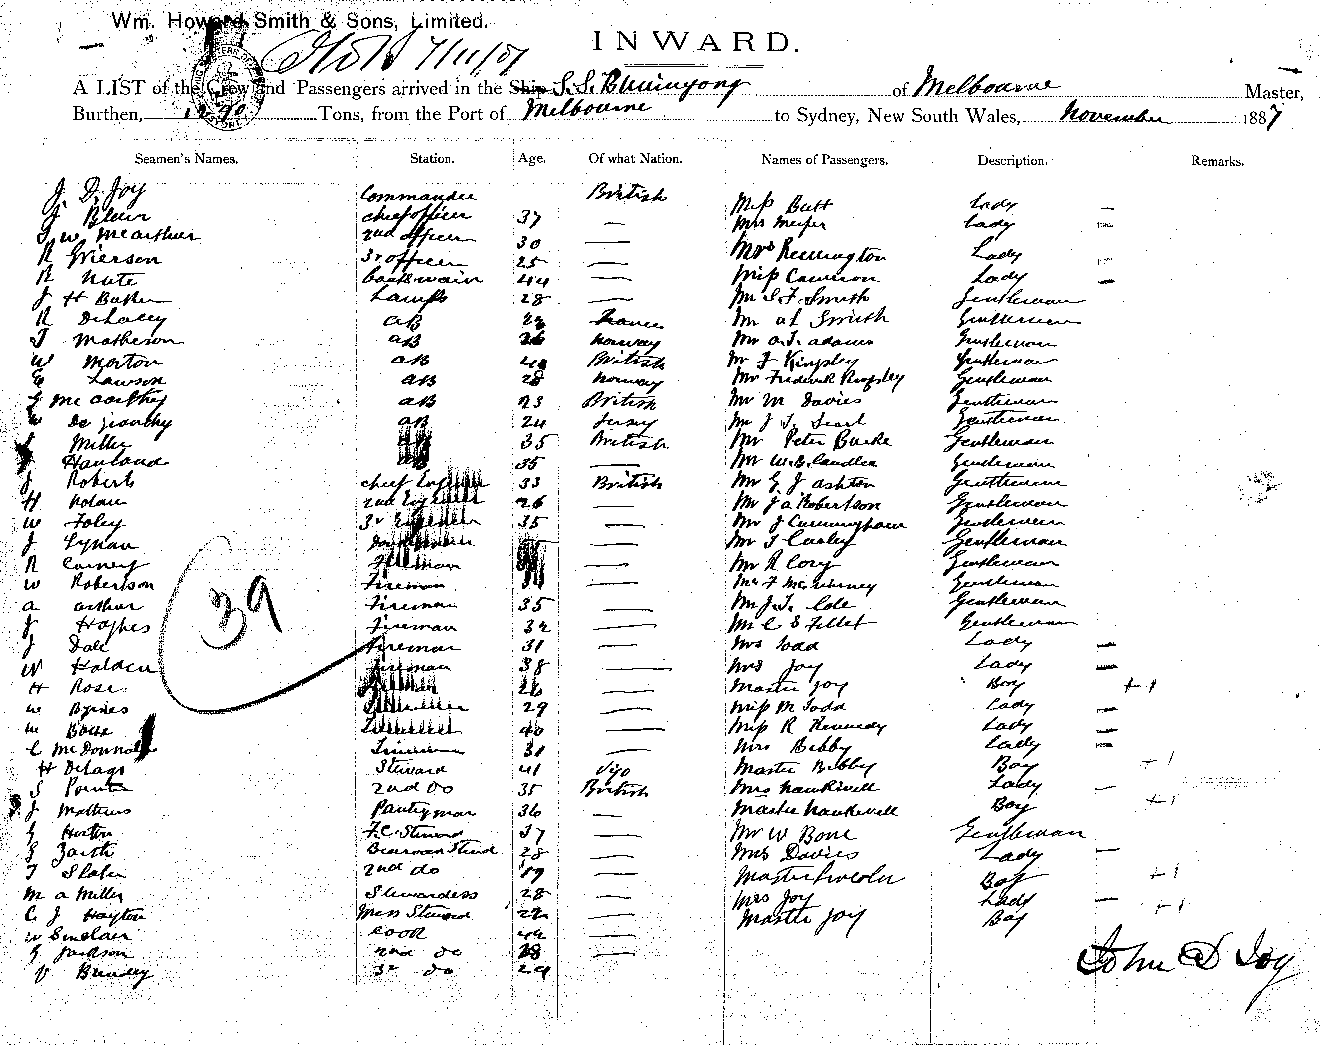 Wm. Howard Smith & Sons, Limited.
INWARD.
A LIST of the Crew and Passengers arrived in the Ship S.S. Buninyong of Melbourne Master,
Burthen, Tons, from the Port of Melbourne to Sydney, New South Wales, November 1887
Seamen's Names. Station. Age. Of what Nation. Names of Passengers. Description. Remarks.
J. D. Joy Commander British Miss Butt Lady —
J Blair chief officer 37 — Mrs Lady
J W McArthur 2nd officer 30 — Mrs Remington Lady
R Grierson 3r officer 25 — Miss Cameron Lady —
R Nute boatswain 44 — Mr S. F. Smith Gentleman
J H Baker Lamps 28 — Mr al Smith Gentleman
R DeLacey AB France Mr A. J. Adams Gentleman
J Matheson AB 26 Norway Mr J Kingsley Gentleman
W Morton AB British Mr Frederick Kingsley Gentleman
Lawson AB 28 Norway Mr M Davies Gentleman
G McCarthy AB 23 British Mr J. J. Gentleman
AB 24 Jersey Mr Peter Burke Gentleman
J Miller AB 35 British Mr W. B. Candler Gentleman
AB 35 — Mr G J Ashton Gentleman
J Roberts chief Engineer 33 British Mr J A Robertson Gentleman
H Nolan 2nd Engineer 26 — Mr J Cunningham Gentleman
W Foley 3r Engineer 35 — Mr T Gentleman
J Lynan — Mr R Cory Gentleman
R Carney Fireman — Mr F Gentleman
W Robertson Fireman — Mr J. T. Cole Gentleman
A Arthur Fireman 35 — Mr C S Gentleman
J Hughes Fireman 32 — Mrs Todd Lady —
J Dale Fireman 31 — Mrs Joy Lady —
W Holden Fireman 38 — Master Joy Boy + 1
H Rose 26 — Miss M Todd Lady —
W Byrnes 29 — Miss R Kennedy Lady —
W 40 — Mrs Bibby Lady —
C McDonnald 31 — Master Bibby Boy + 1
H Delago Steward 41 Vigo Mrs Nankivell Lady —
S Pointer 2nd Do 35 British Master Nankivell Boy + 1
J Mathews Pantryman 36 — Mr W Bone Gentleman
G Horton F.C. Steward 37 — Mrs Davies Lady —
S Zaith 28 — Master Lincoln Boy + 1
T Slater 2nd do 19 — Mrs Joy Lady —
M A Miller Stewardess 28 — Master Joy Boy + 1
C. J Hayton Mess Steward 22 —
W Sinclair cook —
G Jackson 2nd do —
V Bundey 3r do 29 —
39
John D Joy